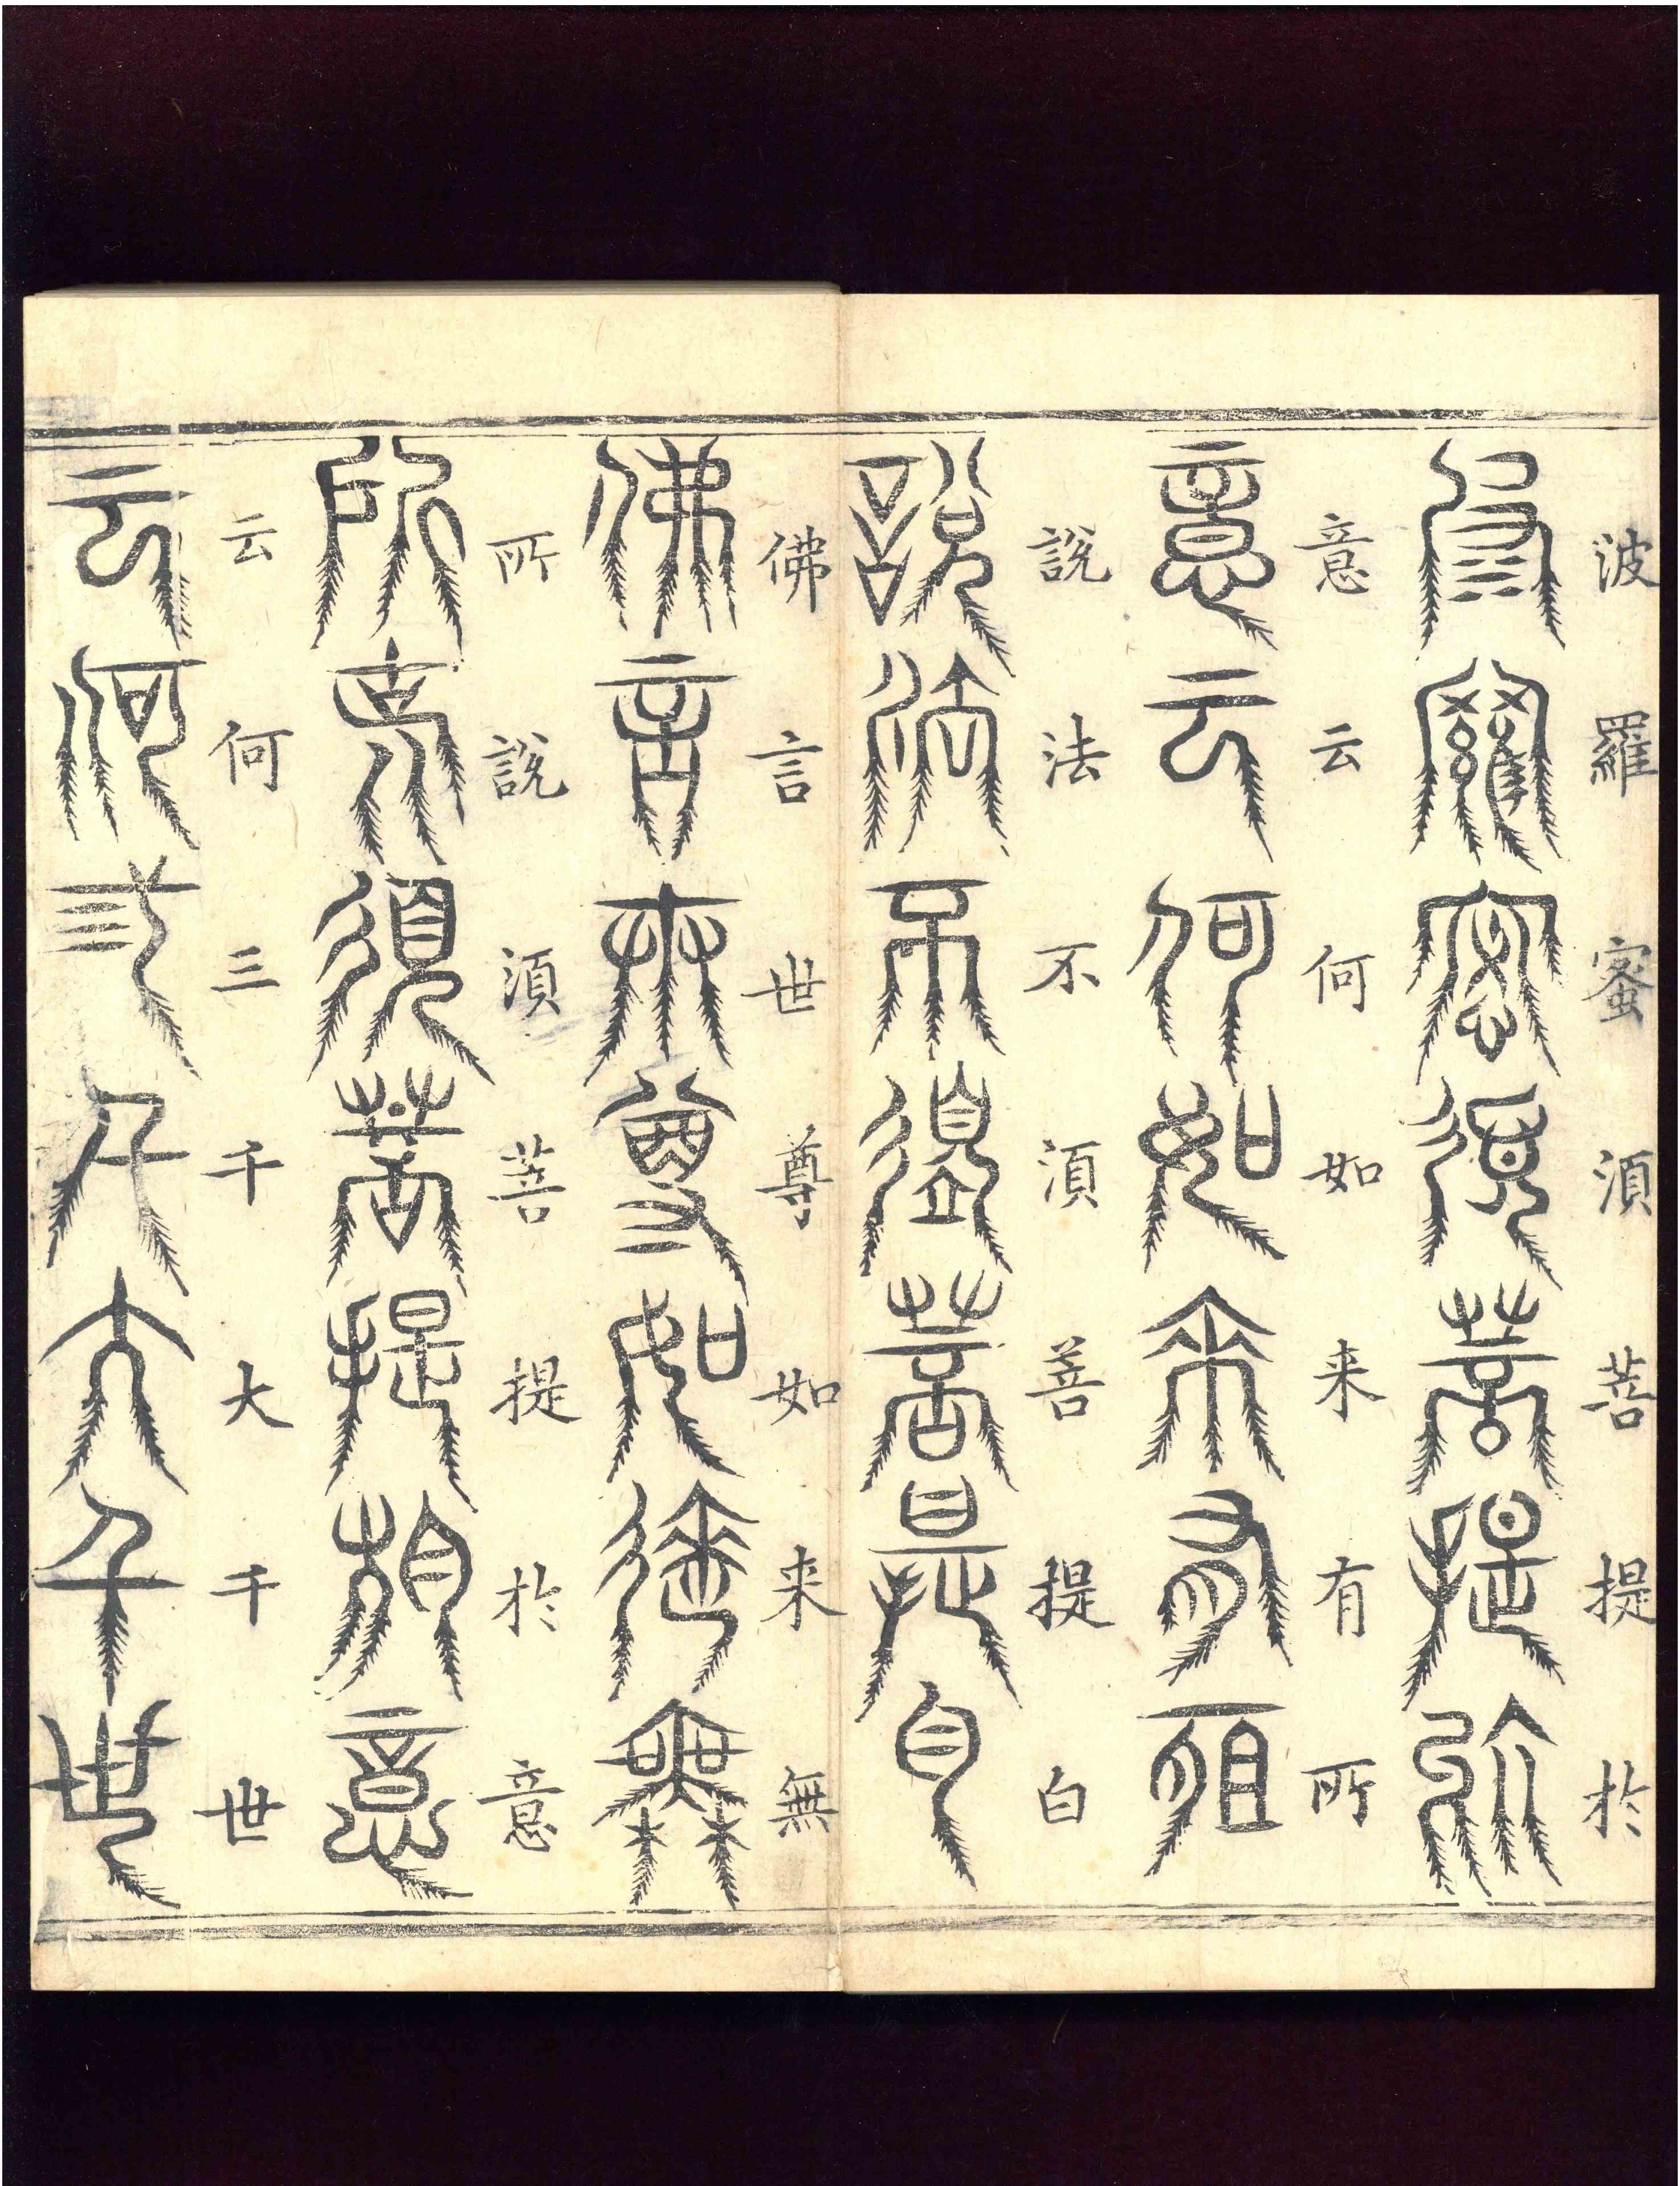 波羅蜜須菩提於
意云何如来有所
說法不須菩提白
佛言世尊如来無
所說須菩提於意
云何三千大千世